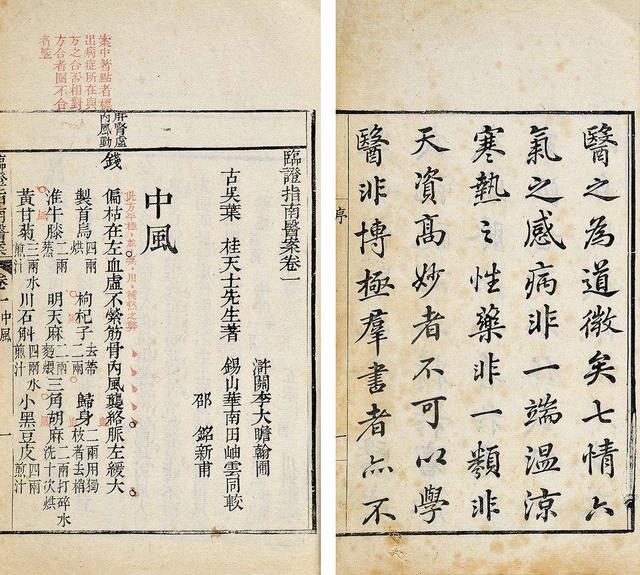 醫之為道微矣七情六
氣之感病非一端溫涼
寒熱之性藥非一類非
天資高妙者不可以學
醫非博極羣書者亦不
序
案中著點者標
出病症所在與
方之合否相對
方合者圈不合
者
臨證指南醫案卷一
古吳葉 桂天士先生著
滸關李大瞻翰圃
錫山華南田岫雲同較
邵 銘新甫
中風
肝腎虛
內風動
錢 偏枯在左血虛不縈筋骨內風襲絡脈左緩大
製首烏四兩烘 枸杞子去蒂二兩 歸身二兩用獨枝者去梢
淮牛膝二兩蒸 明天麻二兩麪煨 三角胡麻二兩打碎水洗十次烘
黃甘菊三兩水煎汁 川石斛四兩水煎汁 小黑豆皮四兩煎汁
臨證指南醫案 卷一 中風 一